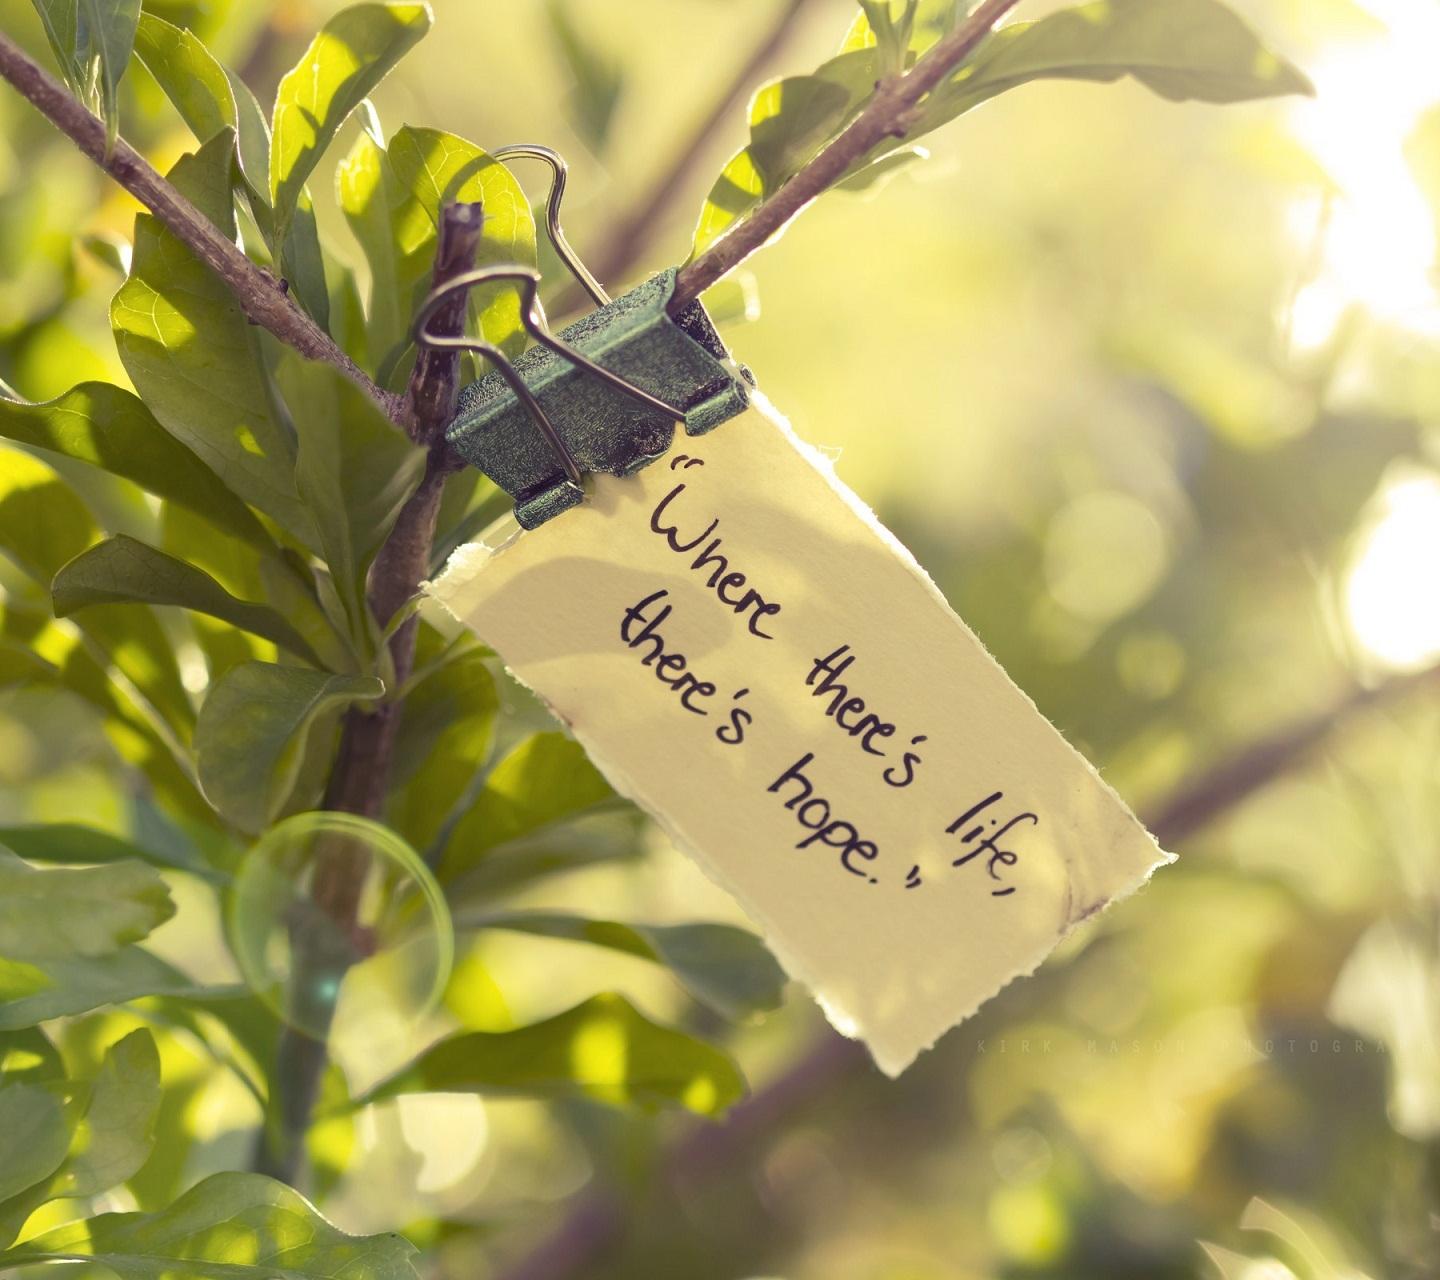 "Where there's life,
there's hope."
KIRK MASON PHOTOGRA